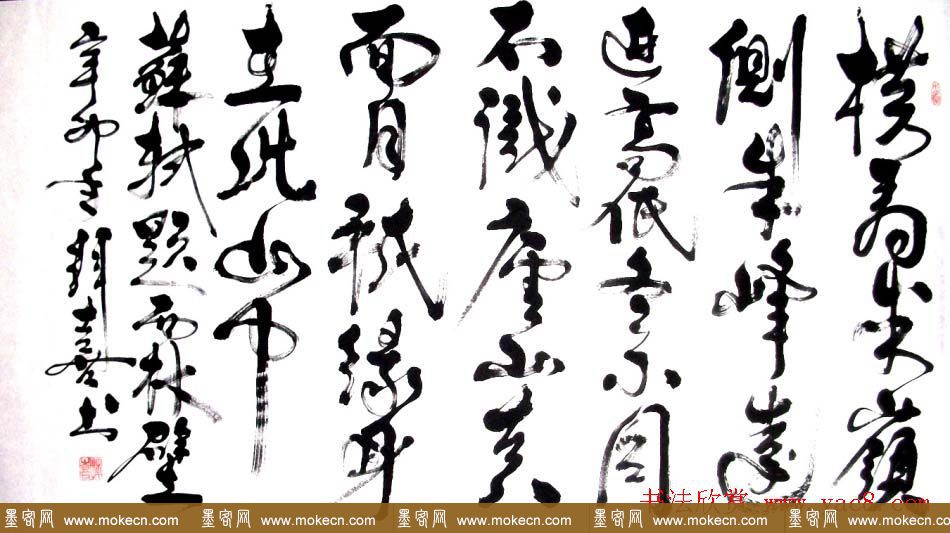 橫看成嶺
側成峰遠
近高低各不同
不識廬山真
面目祇緣身
在此山中
蘇軾題西林壁
辛卯 書
书法欣赏 www.yac8.com
墨客网 www.mokecn.com 墨客网 www.mokecn.com 墨客网 www.mokecn.com 墨客网 www.mokecn.com 墨客网 www.mokecn.com